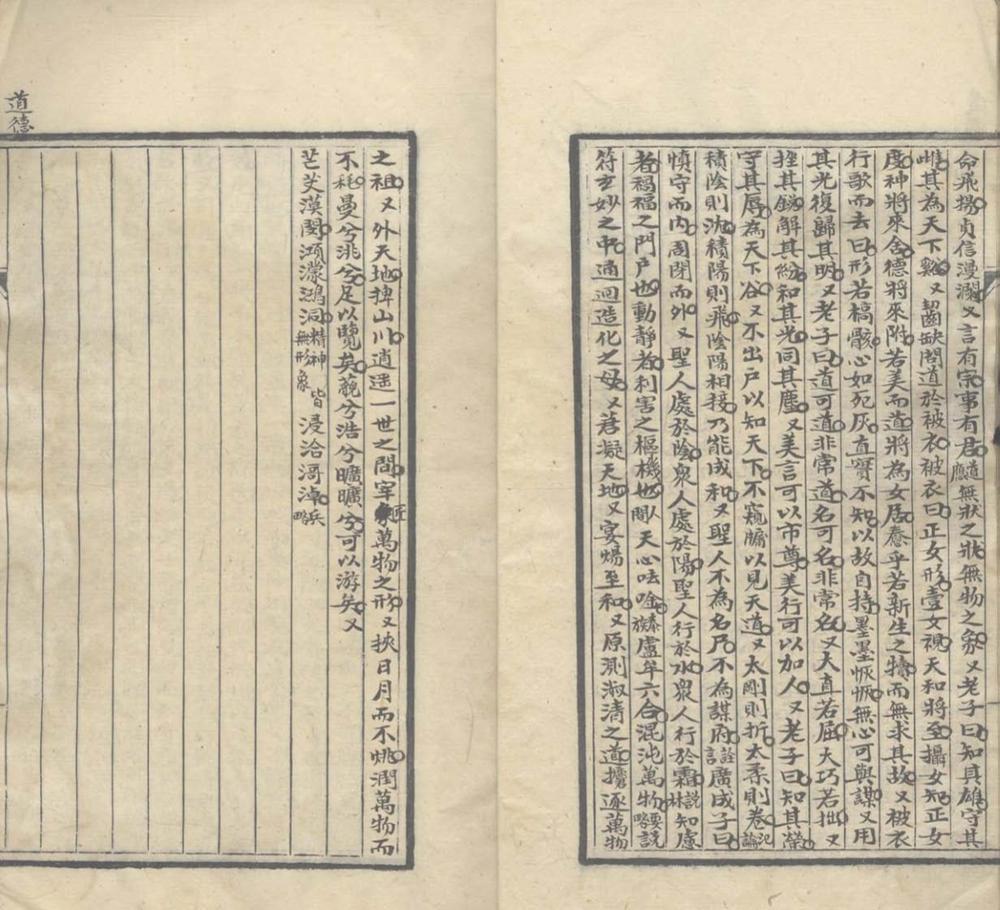 命飛揚貞信漫瀾又言有宗事有君道應無狀之狀無物之象又老子曰知其雄守其
雌其為天下谿又齧缺問道於被衣被衣曰正女形壹女視天和將至攝女知正女
度神將來舍德將來附若美而道將為女居惷乎若新生之犢而無求其故又被衣
行歌而去曰形若槁骸心如死灰直實不知以故自持墨墨恢恢無心可與謀又用
其光復歸其明又老子曰道可道非常道名可名非常名又大直若屈大巧若拙又
挫其銳解其紛和其光同其塵又美言可以市尊美行可以加人又老子曰知其榮
守其辱為天下谷又不出戶以知天下不窺牖以見天道又太剛則折太柔則卷氾論
積陰則沈積陽則飛陰陽相接乃能成和又聖人不為名尸不為謀府詮言廣成子曰
慎守而內周閉而外又聖人處於陰衆人處於陽聖人行於水衆人行於霜說林知慮
者禍福之門戶也動靜者利害之樞機也人間天心呿唫泰族盧牟六合混沌萬物要略說
符玄妙之中通迴造化之母又著凝天地又宴煬至和又原測淑清之道攟逐萬物
之祖又外天地捭山川逍遥一世之間宰匠萬物之形又挾日月而不烑潤萬物而
不耗曼兮洮兮足以覽矣藐兮浩兮曠曠兮可以游矣又
芒芠漠閔澒濛鴻洞精神無形象皆浸洽滒淖兵略
道德